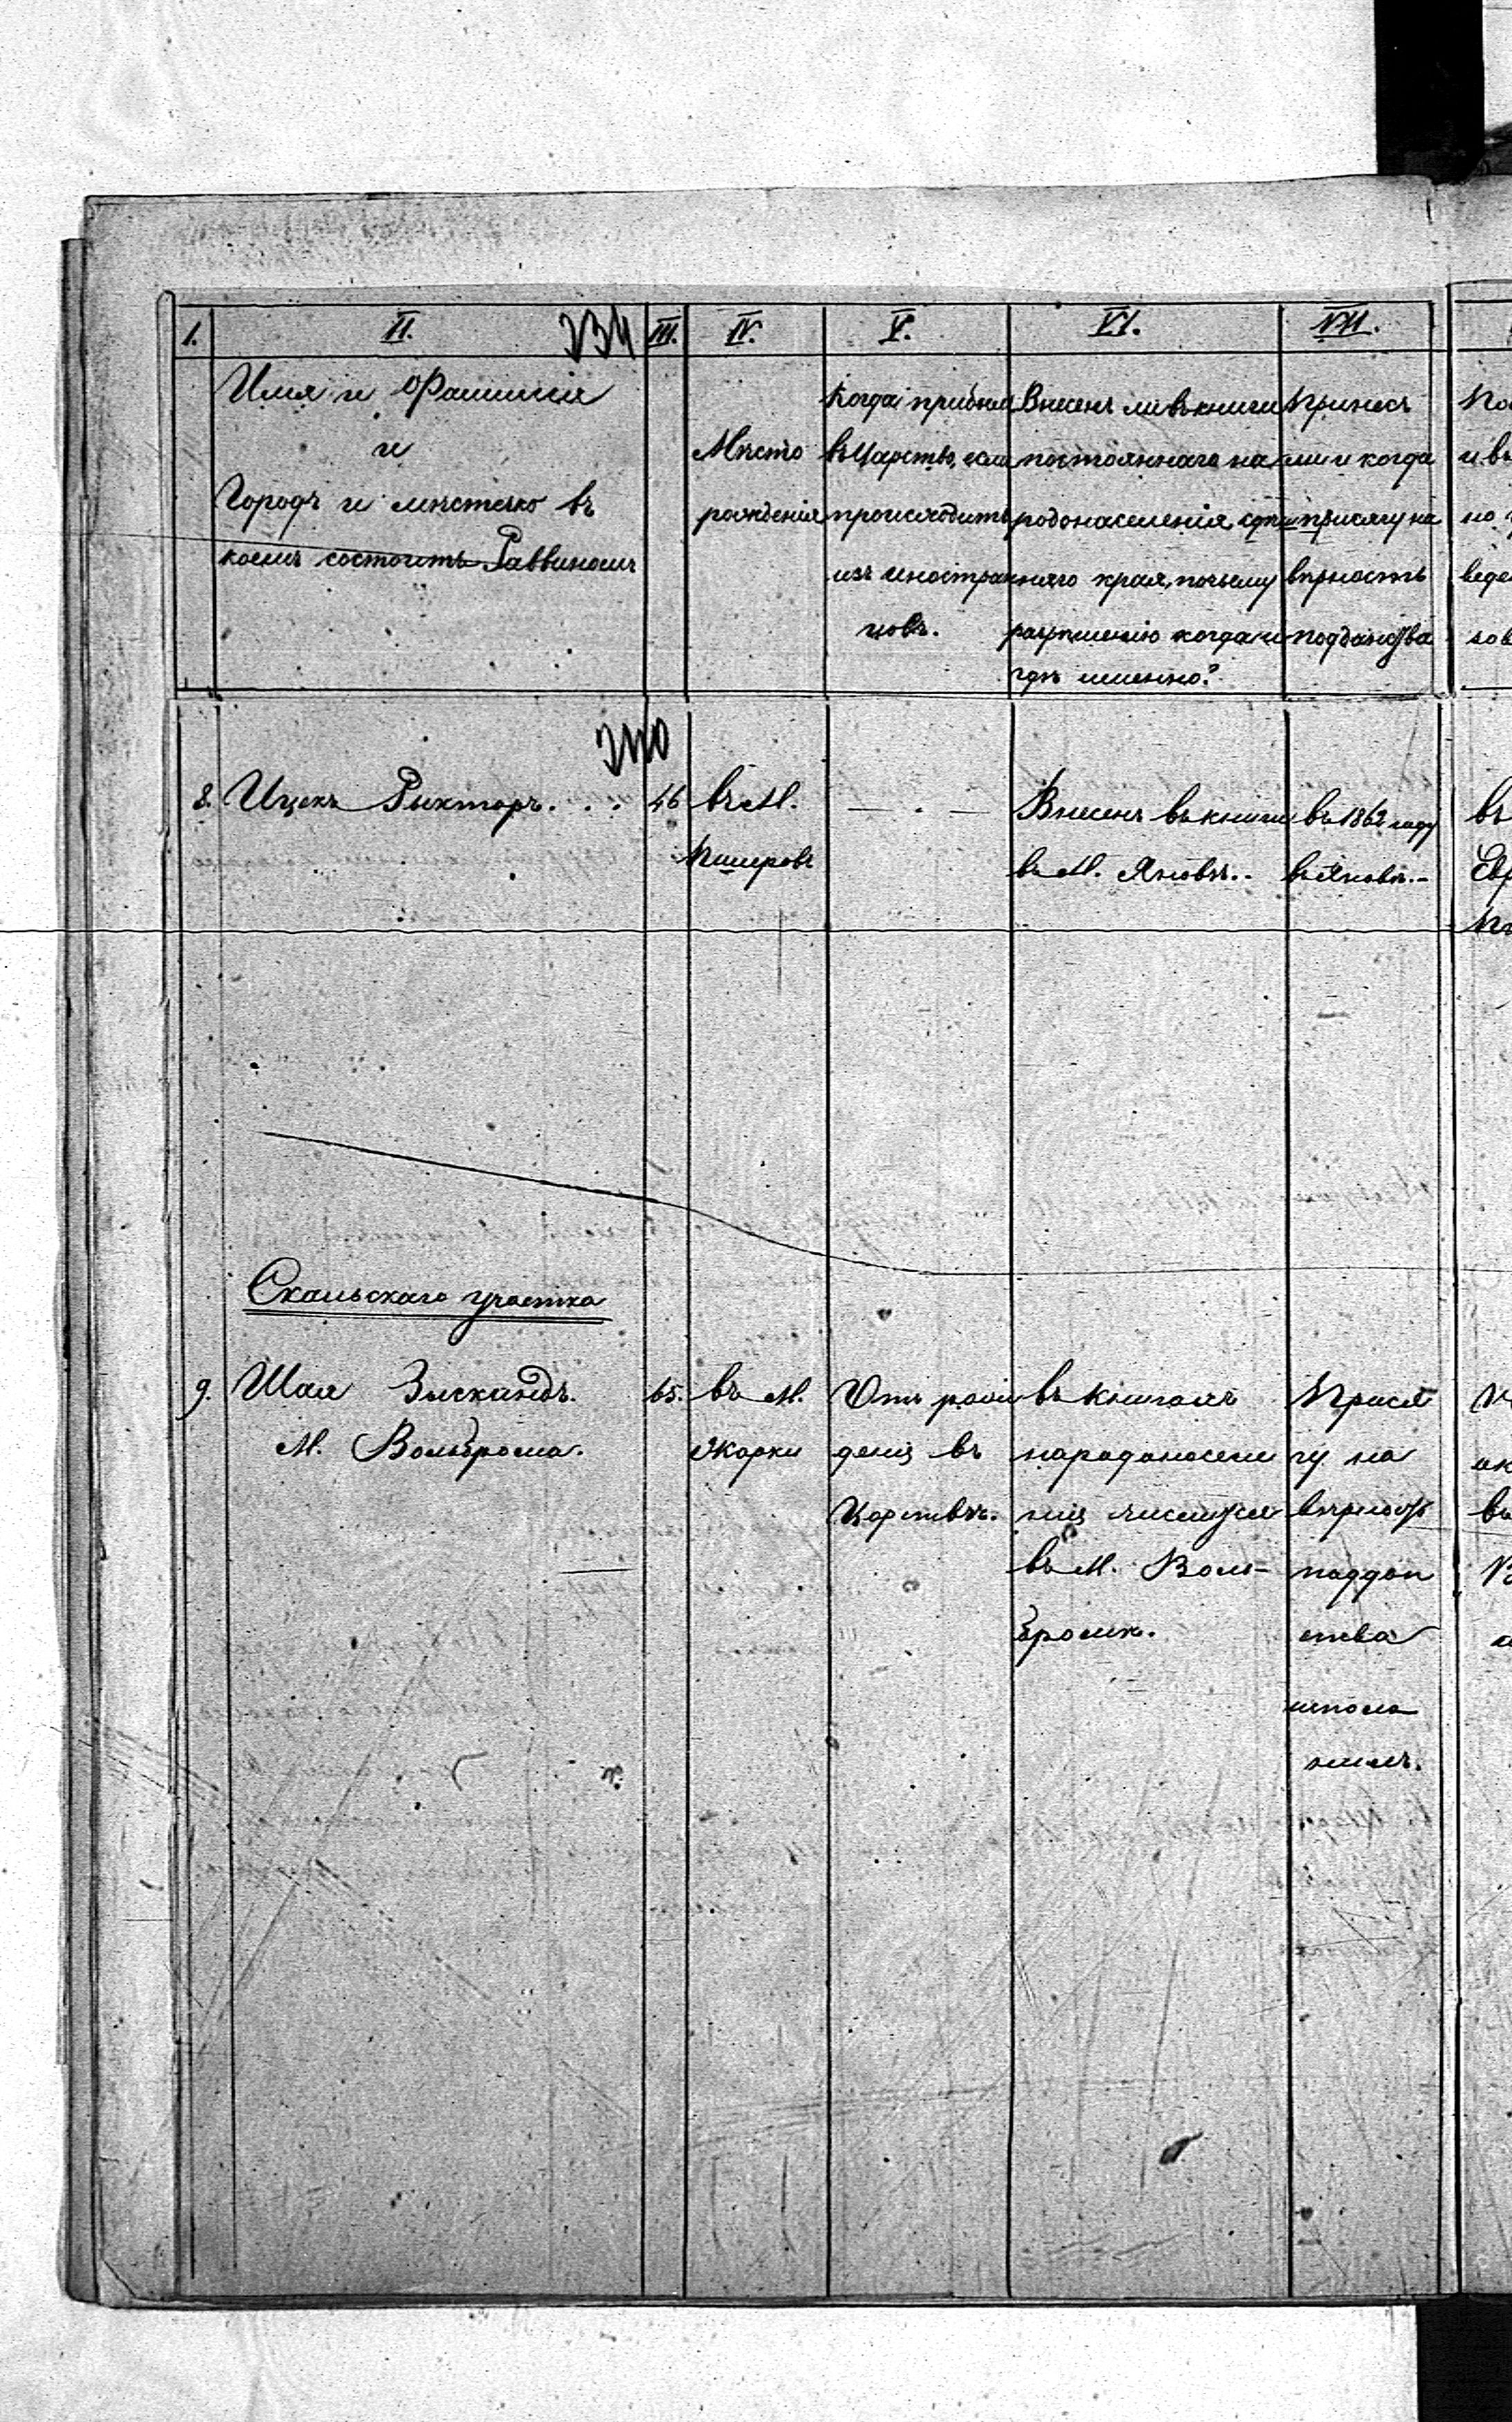 I. II. 234 III. IV. V. VI. VII.
Имя и Фамилія
и
Городъ и мѣстечко въ
коемъ состоитъ Раввиномъ
Мѣсто
рожденія
Когда прибылъ
въ Царство, если
происходитъ
изъ иностран
цовъ.
Внесенъ ли въ книги
постояннаго на
родонаселенія
няго края, почьему
разрѣшенію когда и
гдѣ именно?
Принесъ
ли и когда
присягу на
вѣрность
подданства
240
8. Ицекъ Рыхторъ. . . 46
въ М.
Пил
— . —
Внесенъ въ книги
въ М. Яновѣ..
въ 1862 году
въ Яновѣ.-
въ
Скальскаго участка
9. Шая Зыскандъ. 65.
М. Вольброма.
въ М.
Жарки
Отъ рож
денія въ
Царствѣ.
въ книгахъ
народонаселе
нія числится
въ М. Воль-
бромѣ.
Прися
гу на
вѣрность
поддан
ства
исполо
нилъ.